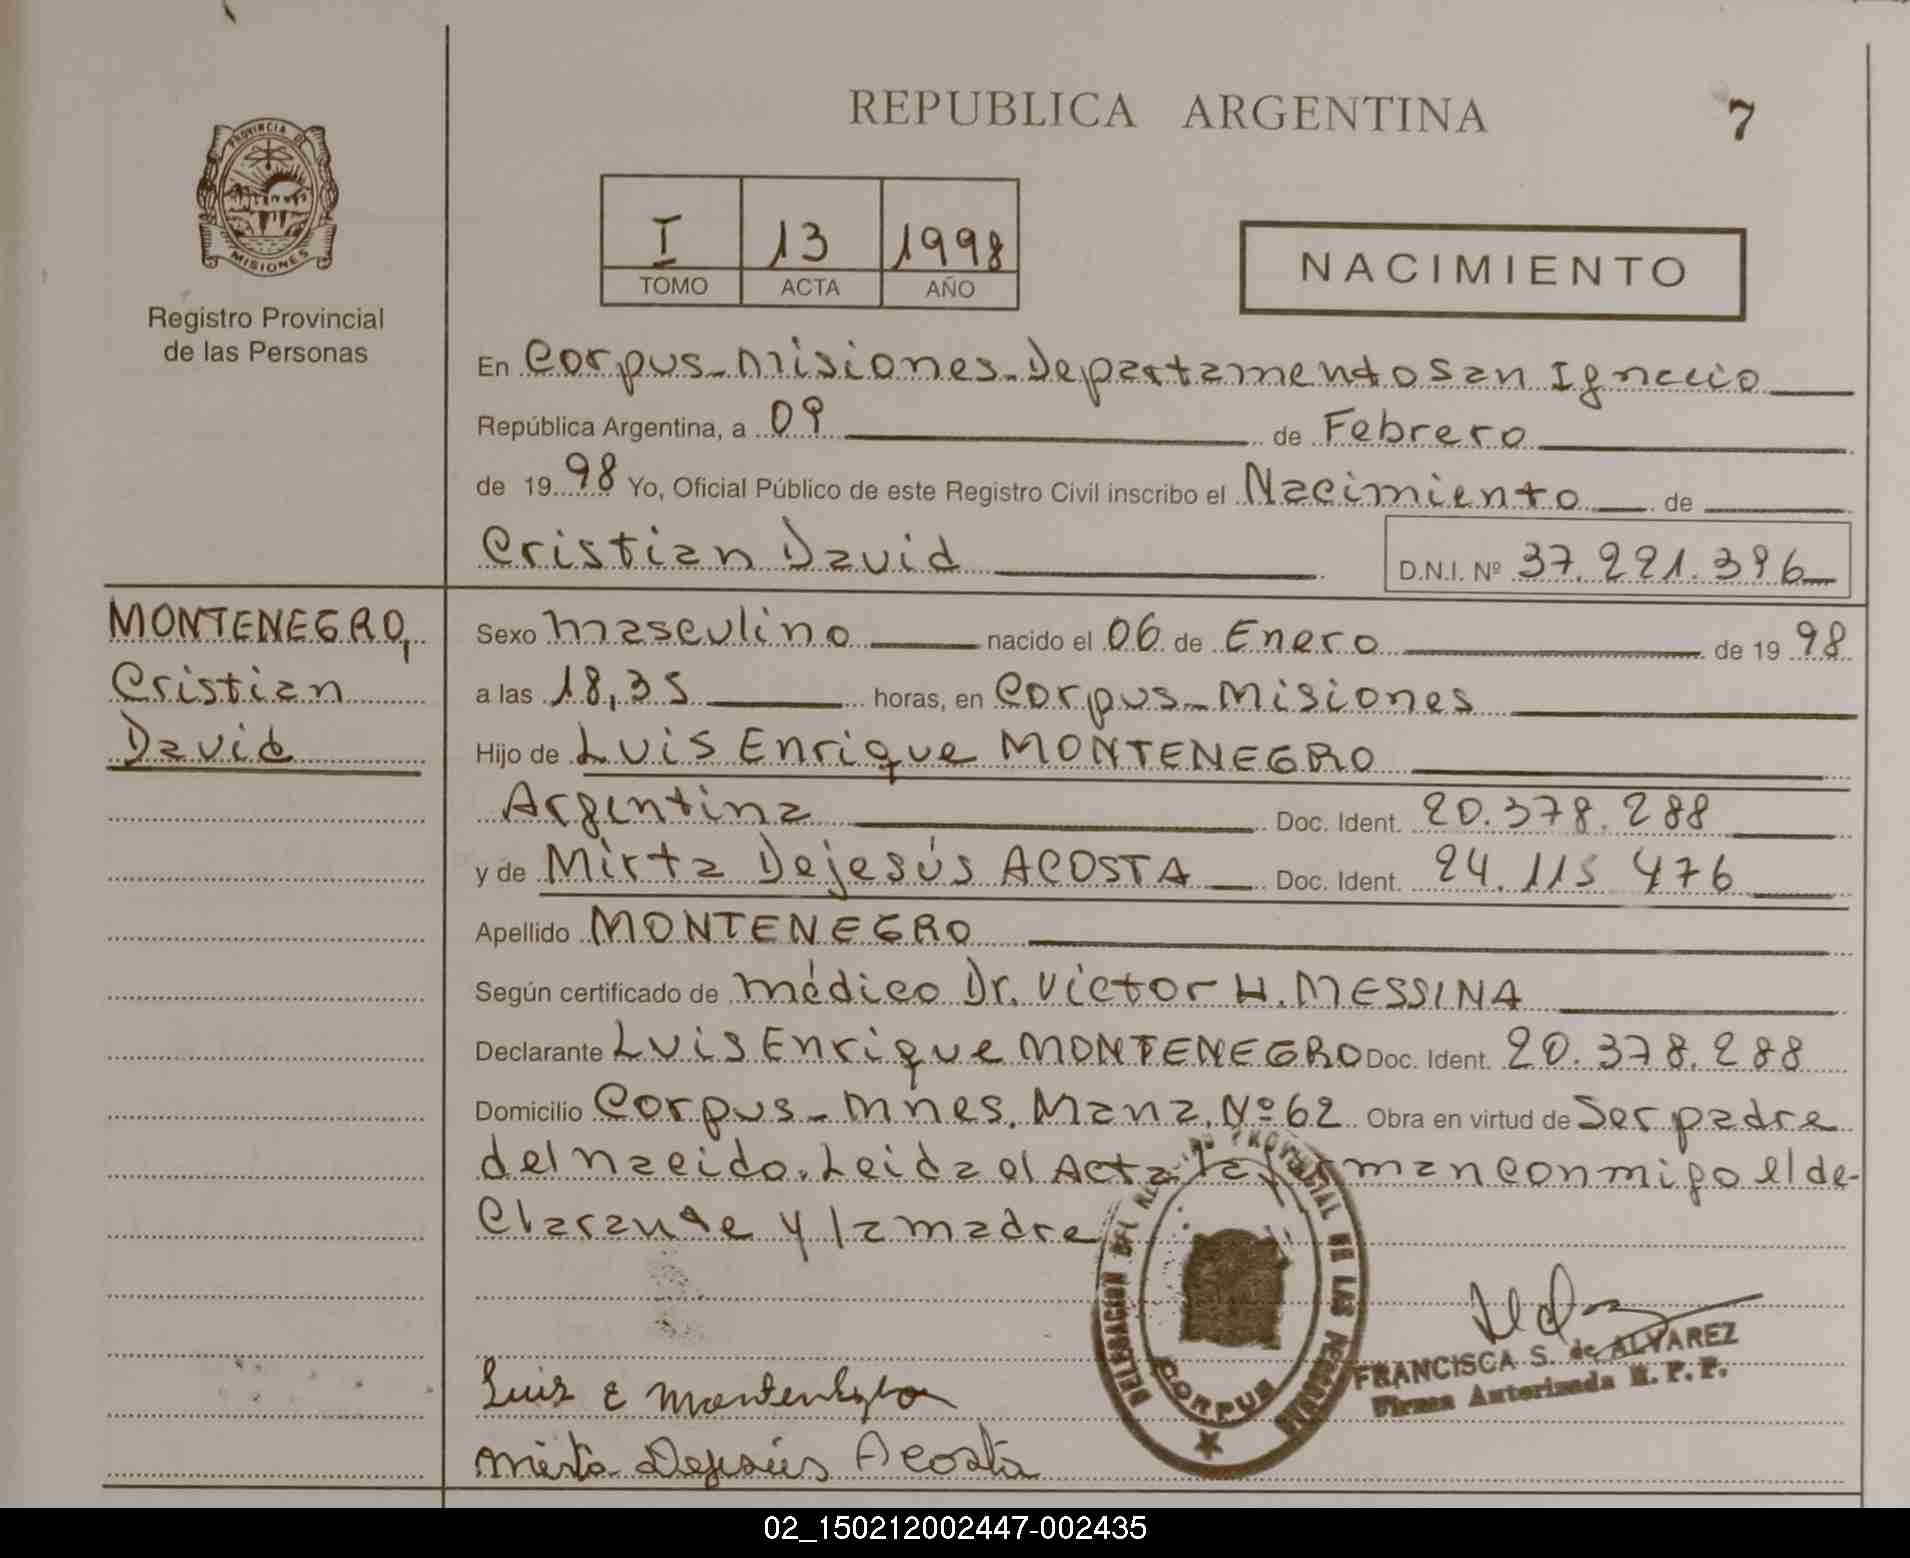 REPUBLICA ARGENTINA
7
PROVINCIA DE
MISIONES
Registro Provincial
de las Personas
I 13 1998
TOMO ACTA AÑO
NACIMIENTO
En Corpus - Misiones - Departamento San Ignacio
República Argentina, a 09 de Febrero
de 1998 Yo, Oficial Público de este Registro Civil inscribo el Nacimiento de
Cristian David
D.N.I. Nº 37.221.396
MONTENEGRO,
Cristian
David
Sexo Masculino nacido el 06 de Enero de 1998
a las 18,35 horas, en Corpus - Misiones
Hijo de Luis Enrique MONTENEGRO
Argentina Doc. Ident. 20.378.288
y de Mirta Dejesús ACOSTA Doc. Ident. 24.115 476
Apellido MONTENEGRO
Según certificado de médico Dr. Victor H. MESSINA
Declarante Luis Enrique MONTENEGRO Doc. Ident. 20.378.288
Domicilio Corpus - Mnes. Manz. Nº 62 Obra en virtud de Ser padre
del nacido. Leida el Acta la firman conmigo el de-
clarante y la madre
DELEGACION DEL REGISTRO PROVINCIAL DE LAS PERSONAS
CORPUS
FRANCISCA S. de ALVAREZ
Firma Autorizada R. P. P.
Luis E Montenegro
Mirta Dejesús Acosta
02_150212002447-002435